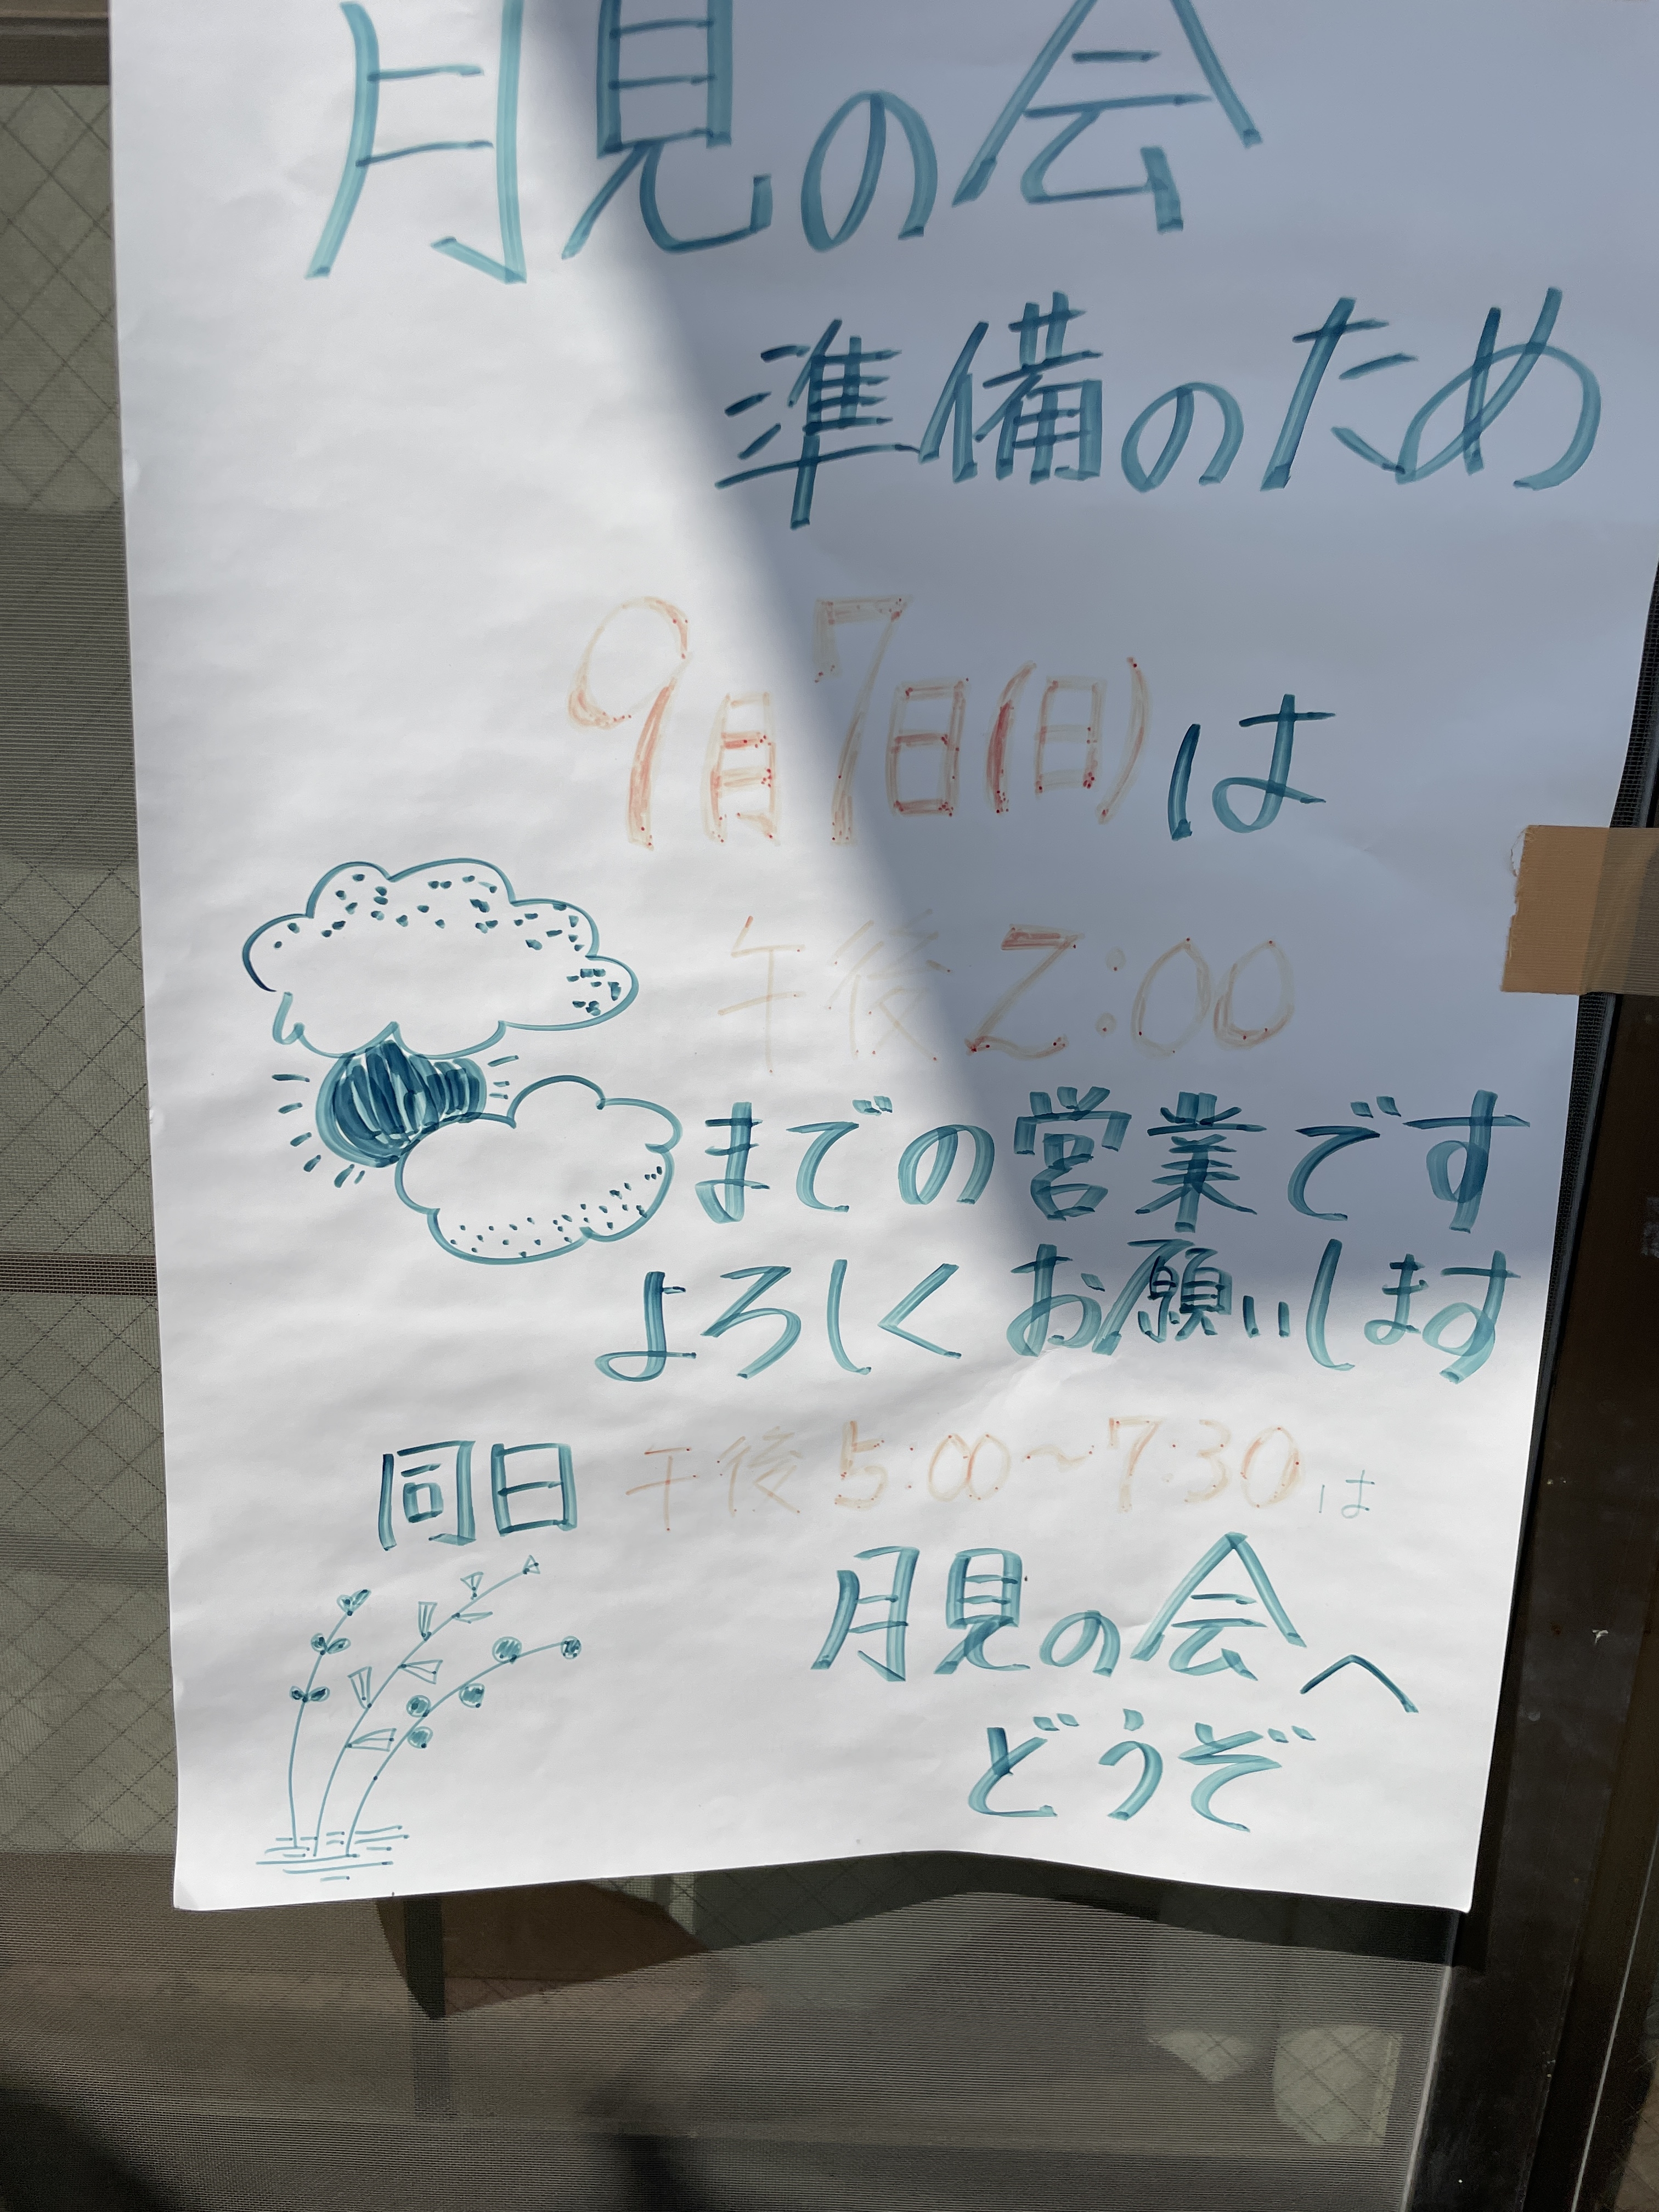 月見の会
準備のため
9月7日(日)は
午後2:00
までの営業です
よろしくお願いします
同日 午後5:00〜7:30は
月見の会へ
どうぞ